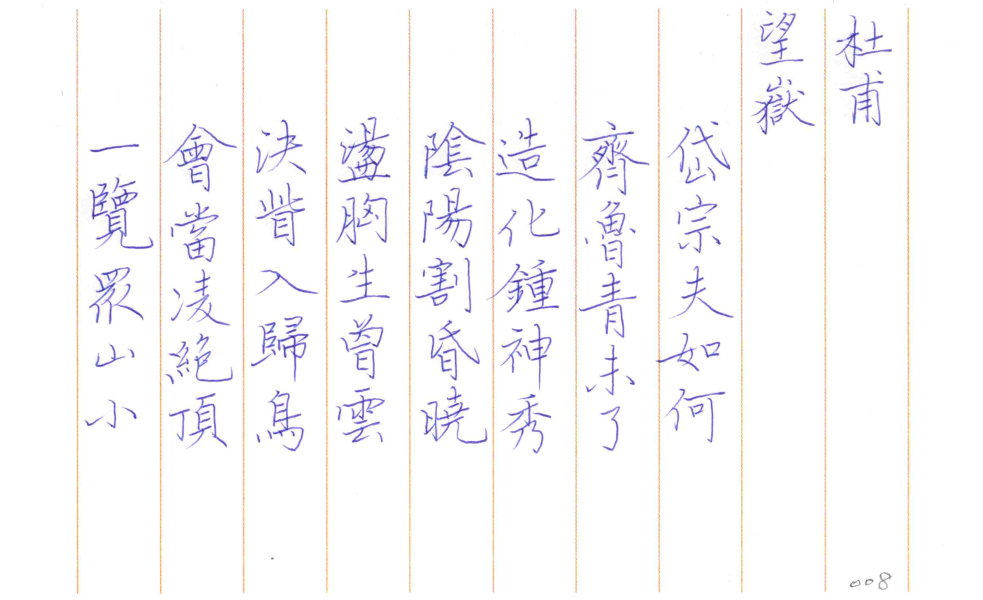 杜甫
望嶽
岱宗夫如何
齊魯青未了
造化鍾神秀
陰陽割昏曉
盪胸生曾雲
決眥入歸鳥
會當凌絕頂
一覽眾山小
008